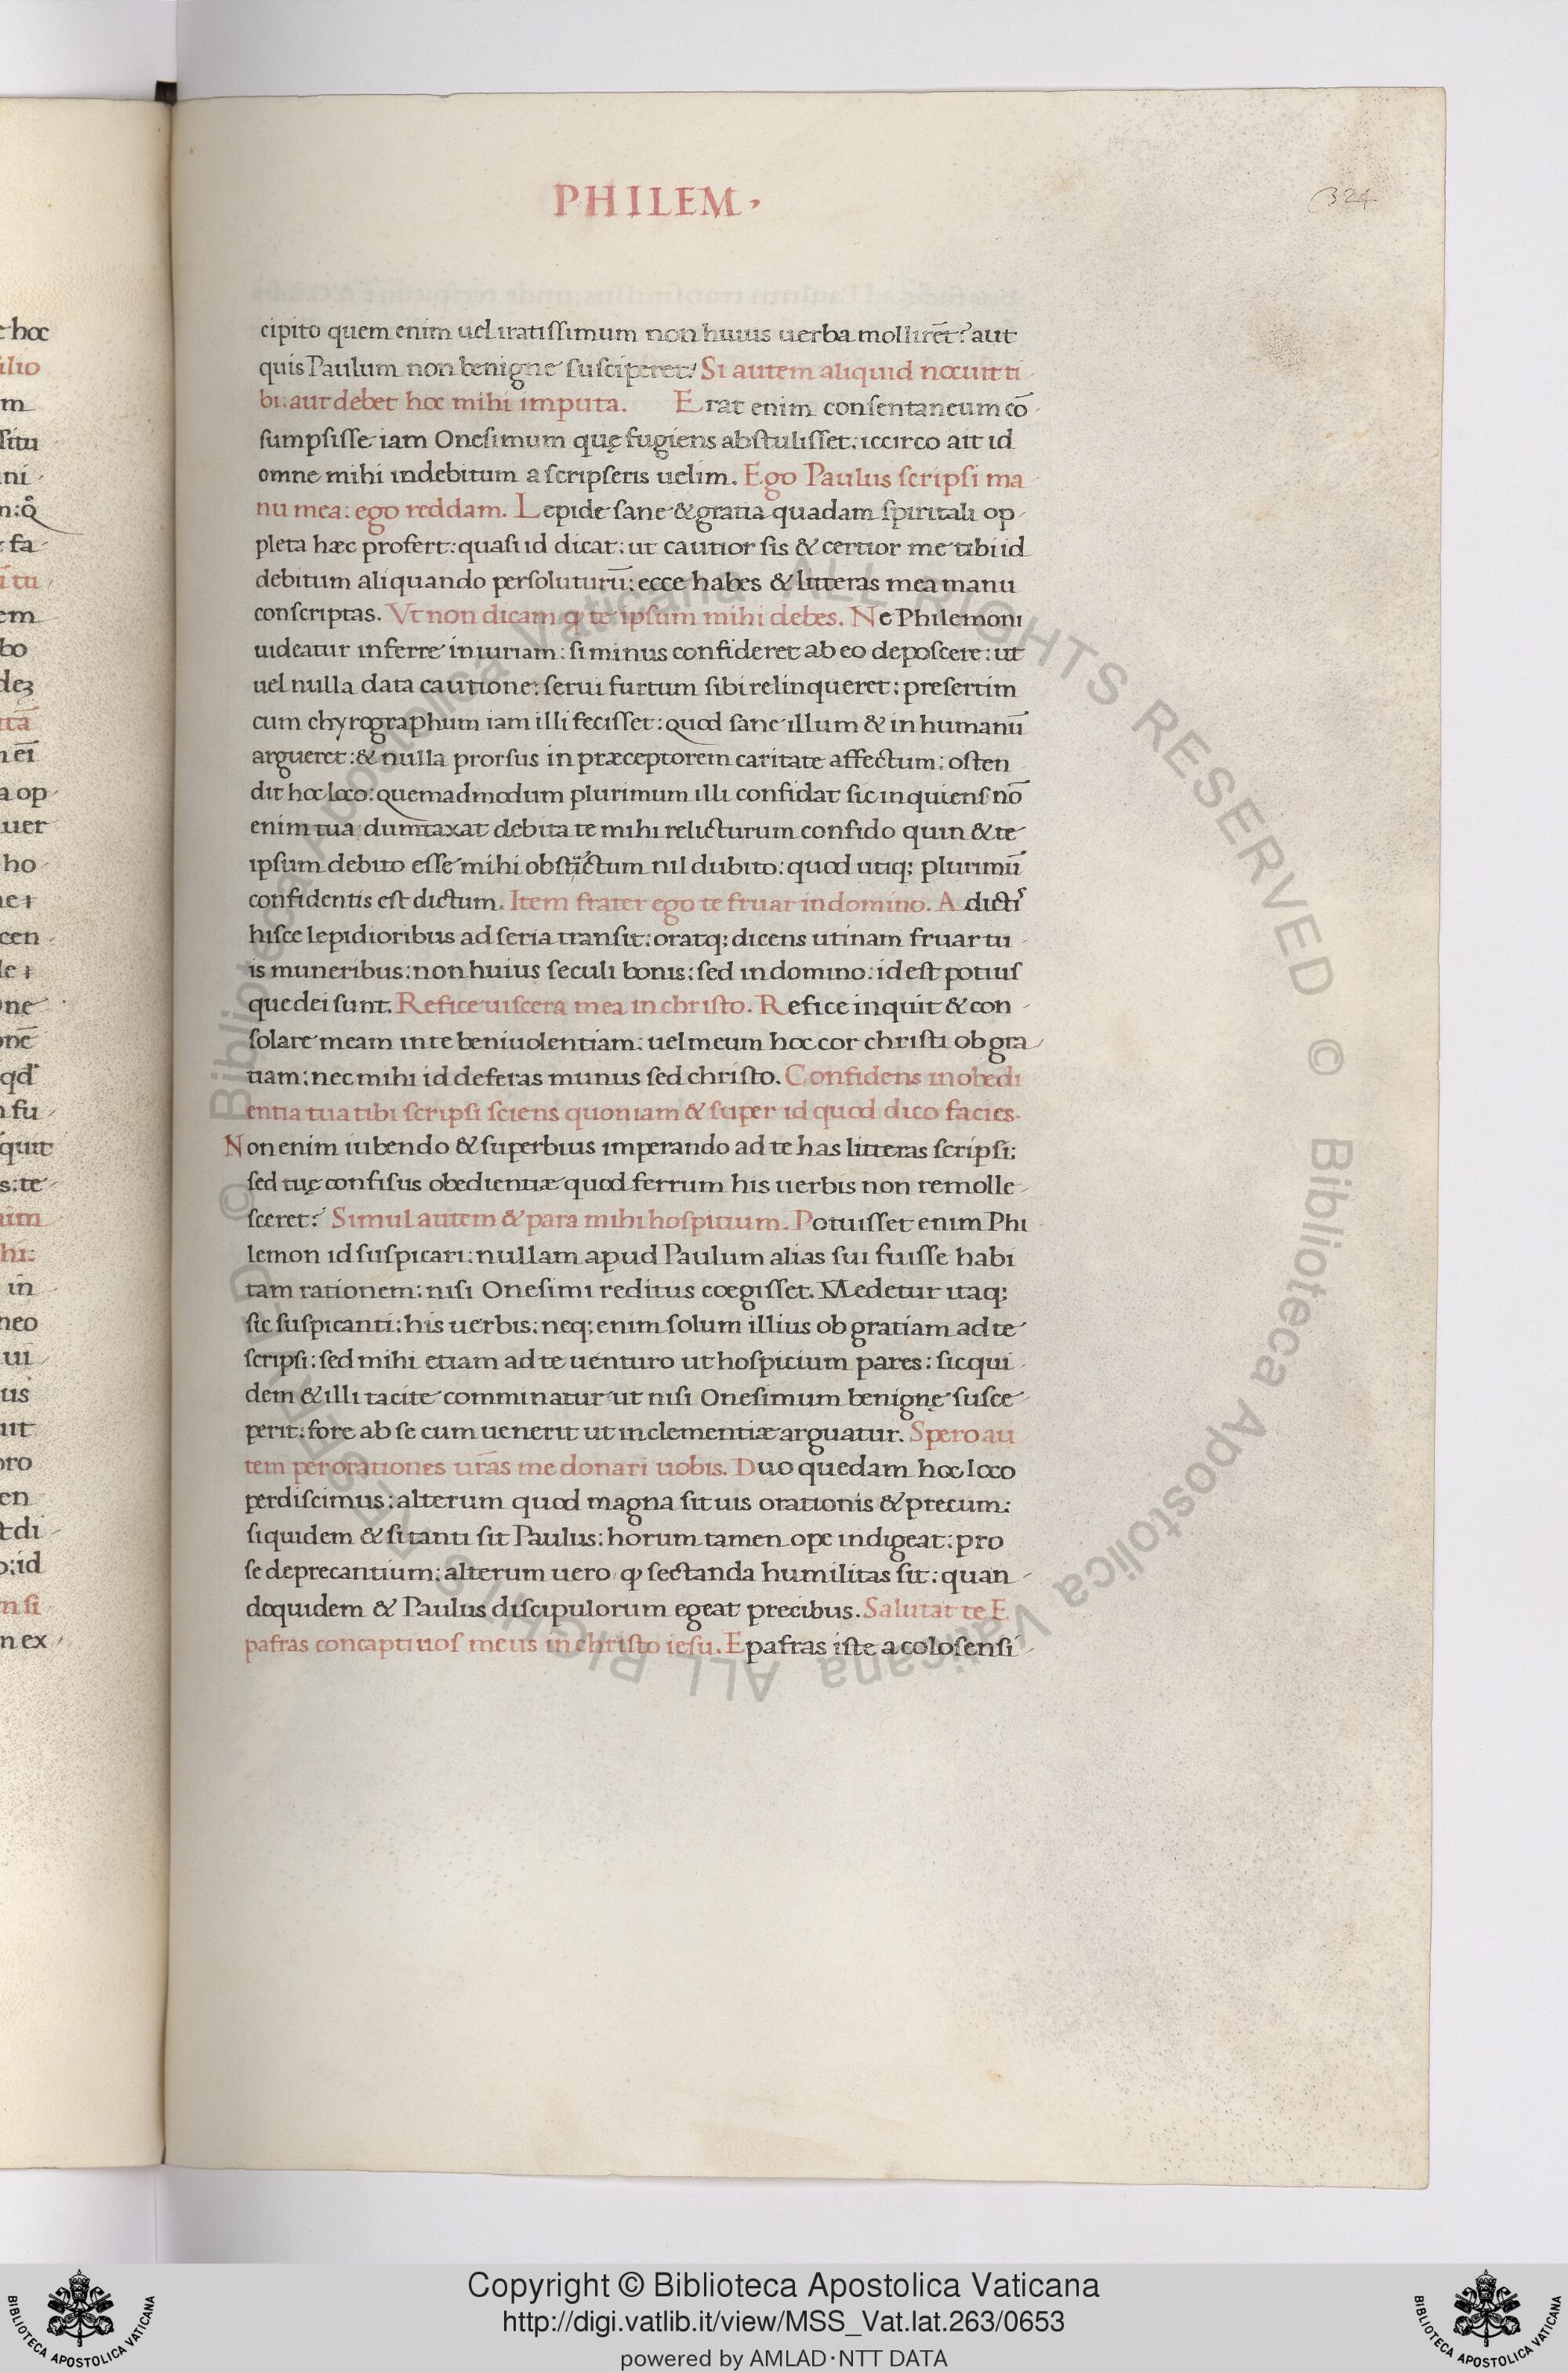 PHILEM.
324
cipito quem enim uel iratissimum non huius uerba mollirēt? aut
quis Paulum non benigne susciperet? Si autem aliquid nocuit ti
bi: aut debet hoc mihi imputa. Erat enim consentaneum cō
sumpsisse iam Onesimum quę fugiens abstulisset: iccirco ait id
omne mihi indebitum ascripseris uelim. Ego Paulus scripsi ma
nu mea: ego reddam. Lepide sane & gratia quadam spiritali op
pleta hæc profert: quasi id dicat: ut cautior sis & certior me tibi id
debitum aliquando persoluturū: ecce habes & litteras mea manu
conscriptas. Vt non dicam ꝙ te ipsum mihi debes. Ne Philemoni
uideatur inferre iniuriam: si minus confideret ab eo deposcere: ut
uel nulla data cautione: serui furtum sibi relinqueret: presertim
cum chyrographum iam illi fecisset: quod sane illum & inhumanū
argueret: & nulla prorsus in præceptorem caritate affectum: osten
dit hoc loco: quemadmodum plurimum illi confidat sic inquiens nō
enim tua dumtaxat debita te mihi relicturum confido quin & te
ipsum debito esse mihi obstͥctum nil dubito: quod utiq; plurimū
confidentis est dictum. Item frater ego te fruar in domino. A dictı᷒
hisce lepidioribus ad seria transit: oratq; dicens utinam fruar tu
is muneribus: non huius seculi bonis: sed in domino: id est potius
que dei sunt. Refice uiscera mea in christo. Refice inquit & con
solare meam in te beniuolentiam: uel meum hoc cor christi ob gra
tiam: nec mihi id deferas munus sed christo. Confidens in obedi
entia tua tibi scripsi sciens quoniam & super id quod dico facies.
Non enim iubendo & superbius imperando ad te has litteras scripsi:
sed tuę confisus obedientiæ quod ferrum his uerbis non remolle
sceret? Simul autem & para mihi hospitium. Potuisset enim Phi
lemon id suspicari: nullam apud Paulum alias sui fuisse habi
tam rationem: nisi Onesimi reditus coegisset. Medetur itaq;
sic suspicanti: his uerbis: neq; enim solum illius ob gratiam ad te
scripsi: sed mihi etiam ad te uenturo ut hospicium pares: sic qui
dem & illi tacite comminatur ut nisi Onesimum benignę susce
perit: fore ab se cum uenerit ut inclementiæ arguatur. Spero au
tem per orationes ur̄as me donari uobis. Duo quedam hoc loco
perdiscimus: alterum quod magna sit uis orationis & precum:
siquidem & si tanti sit Paulus: horum tamen ope indigeat: pro
se deprecantium: alterum uero ꝙ sectanda humilitas sit: quan
doquidem & Paulus discipulorum egeat precibus. Salutat te E
pafras concaptiuos meus in christo iesu. Epafras iste a colosensi
Copyright © Biblioteca Apostolica Vaticana
http://digi.vatlib.it/view/MSS_Vat.lat.263/0653
powered by AMLAD·NTT DATA